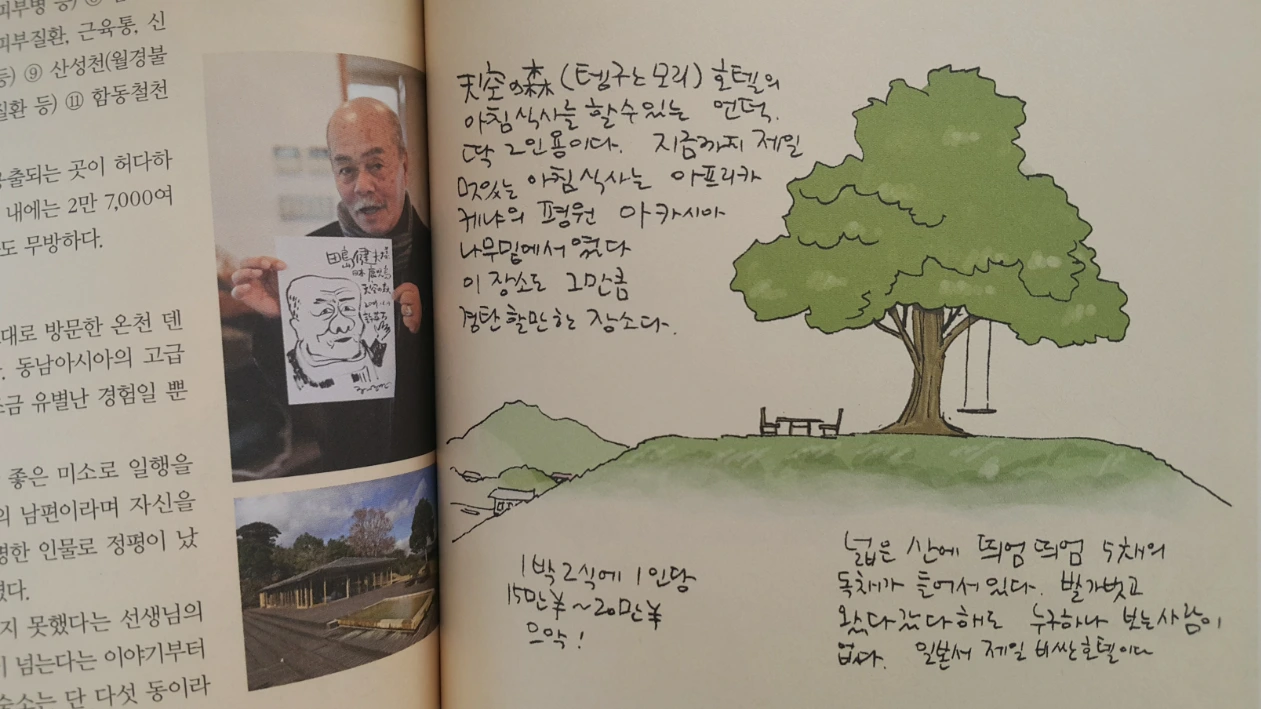 피부병 등)
피부질환, 근육통, 신
등) ⑨ 산성천(월경불
질환 등) ⑪ 함동철천
용출되는 곳이 허다하
내에는 2만 7,000여
도 무방하다.
대로 방문한 온천 덴
동남아시아의 고급
조금 유별난 경험일 뿐
좋은 미소로 일행을
의 남편이라며 자신을
명한 인물로 정평이 났
였다.
지 못했다는 선생님의
이 넘는다는 이야기부터
숙소는 단 다섯 동이라
田島健夫
日本 鹿児島
天空の森
天空の森(텡구노모리) 호텔의
아침식사를 할 수 있는 언덕.
딱 2인용이다. 지금까지 제일
맛있는 아침식사는 아프리카
케냐의 평원 아카시아
나무밑에서 였다
이 장소도 그만큼
경탄할만한 장소다.
1박2식에 1인당
15만¥~20만¥
으악!
넓은 산에 띄엄띄엄 5채의
독채가 들어서있다. 발가벗고
왔다갔다해도 누구하나 보는사람이
없다. 일본서 제일 비싼호텔이다